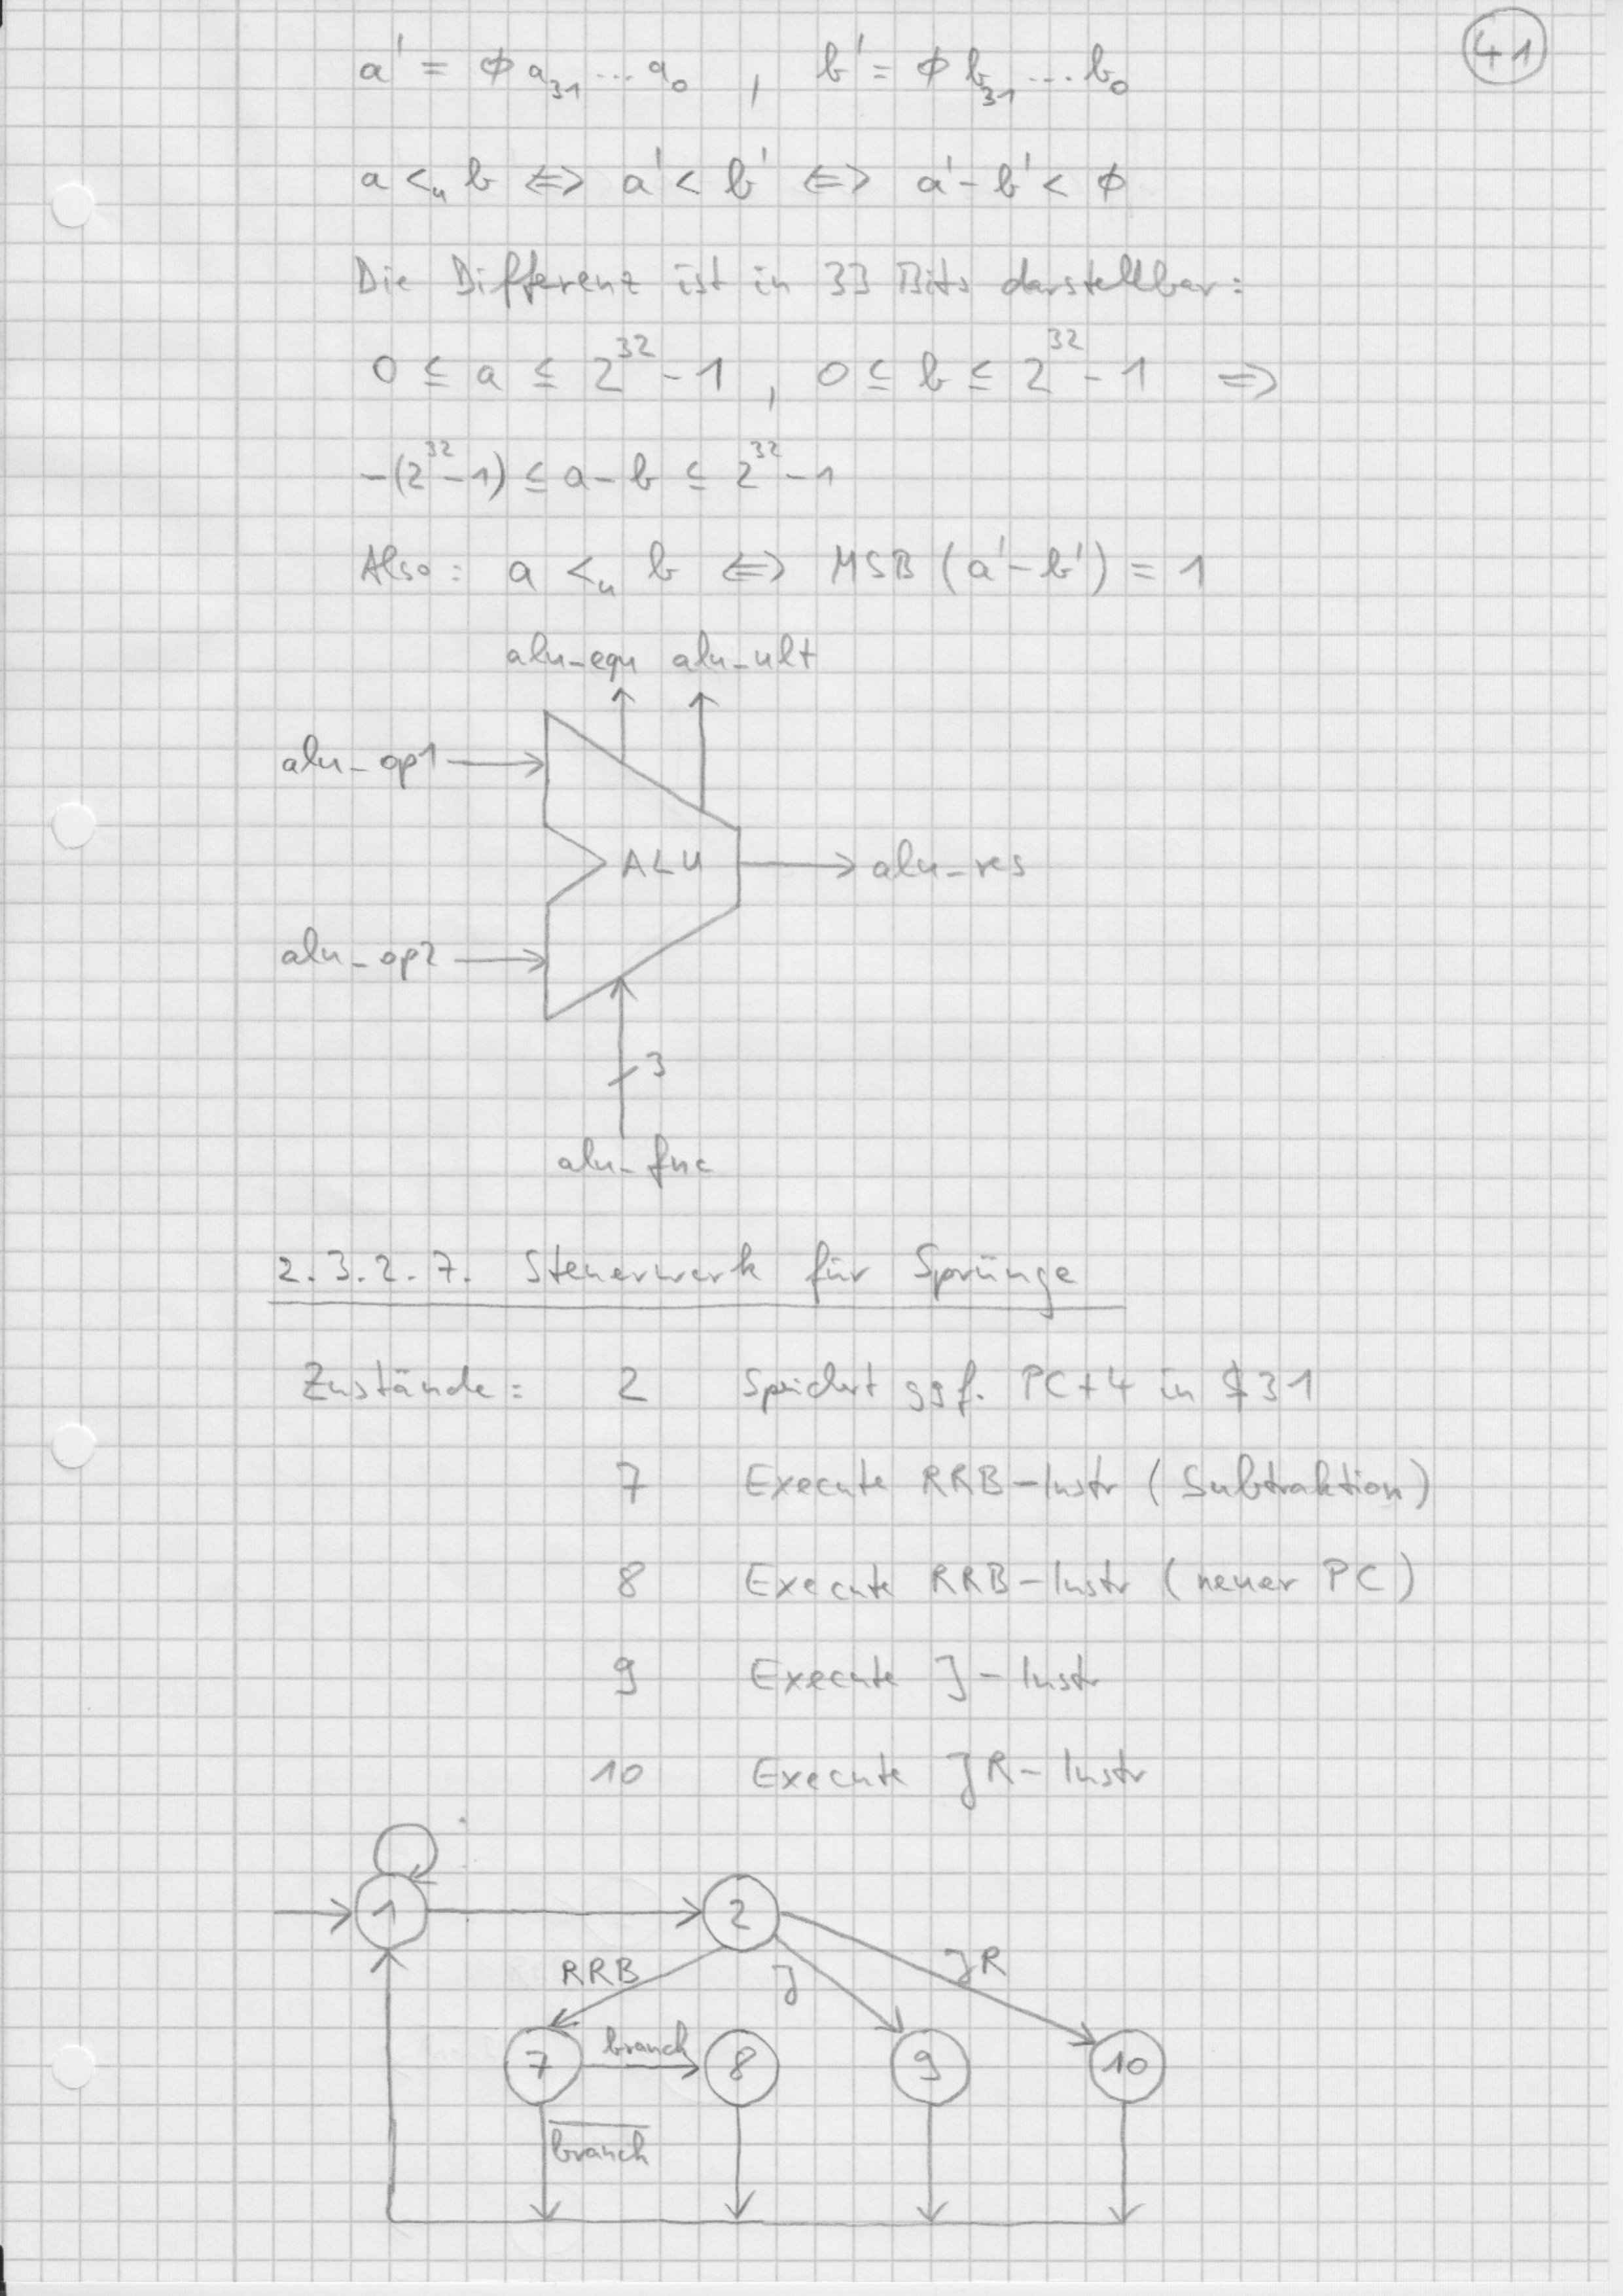 41
a' = ϕ a₃₁ ... a₀ , b' = ϕ b₃₁ ... b₀
a <ᵤ b ⇔ a' < b' ⇔ a' - b' < ϕ
Die Differenz ist in 33 Bits darstellbar:
0 ≤ a ≤ 2³² - 1 , 0 ≤ b ≤ 2³² - 1 ⇒
-(2³² - 1) ≤ a - b ≤ 2³² - 1
Also: a <ᵤ b ⇔ MSB (a' - b') = 1
alu_equ alu_ult
alu_op1
ALU
alu_res
alu_op2
3
alu_fnc
2.3.2.7. Steuerwerk für Sprünge
Zustände: 2 Speichert ggf. PC+4 in $31
7 Execute RRB-Instr (Subtraktion)
8 Execute RRB-Instr (neuer PC)
9 Execute J-Instr
10 Execute JR-Instr
1 2
RRB J JR
7 branch 8 9 10
b̅r̅a̅n̅c̅h̅